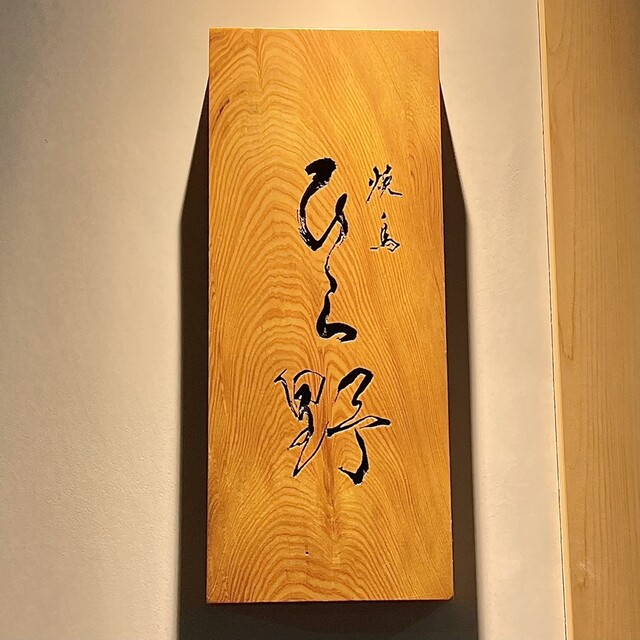 焼鳥
ひら野